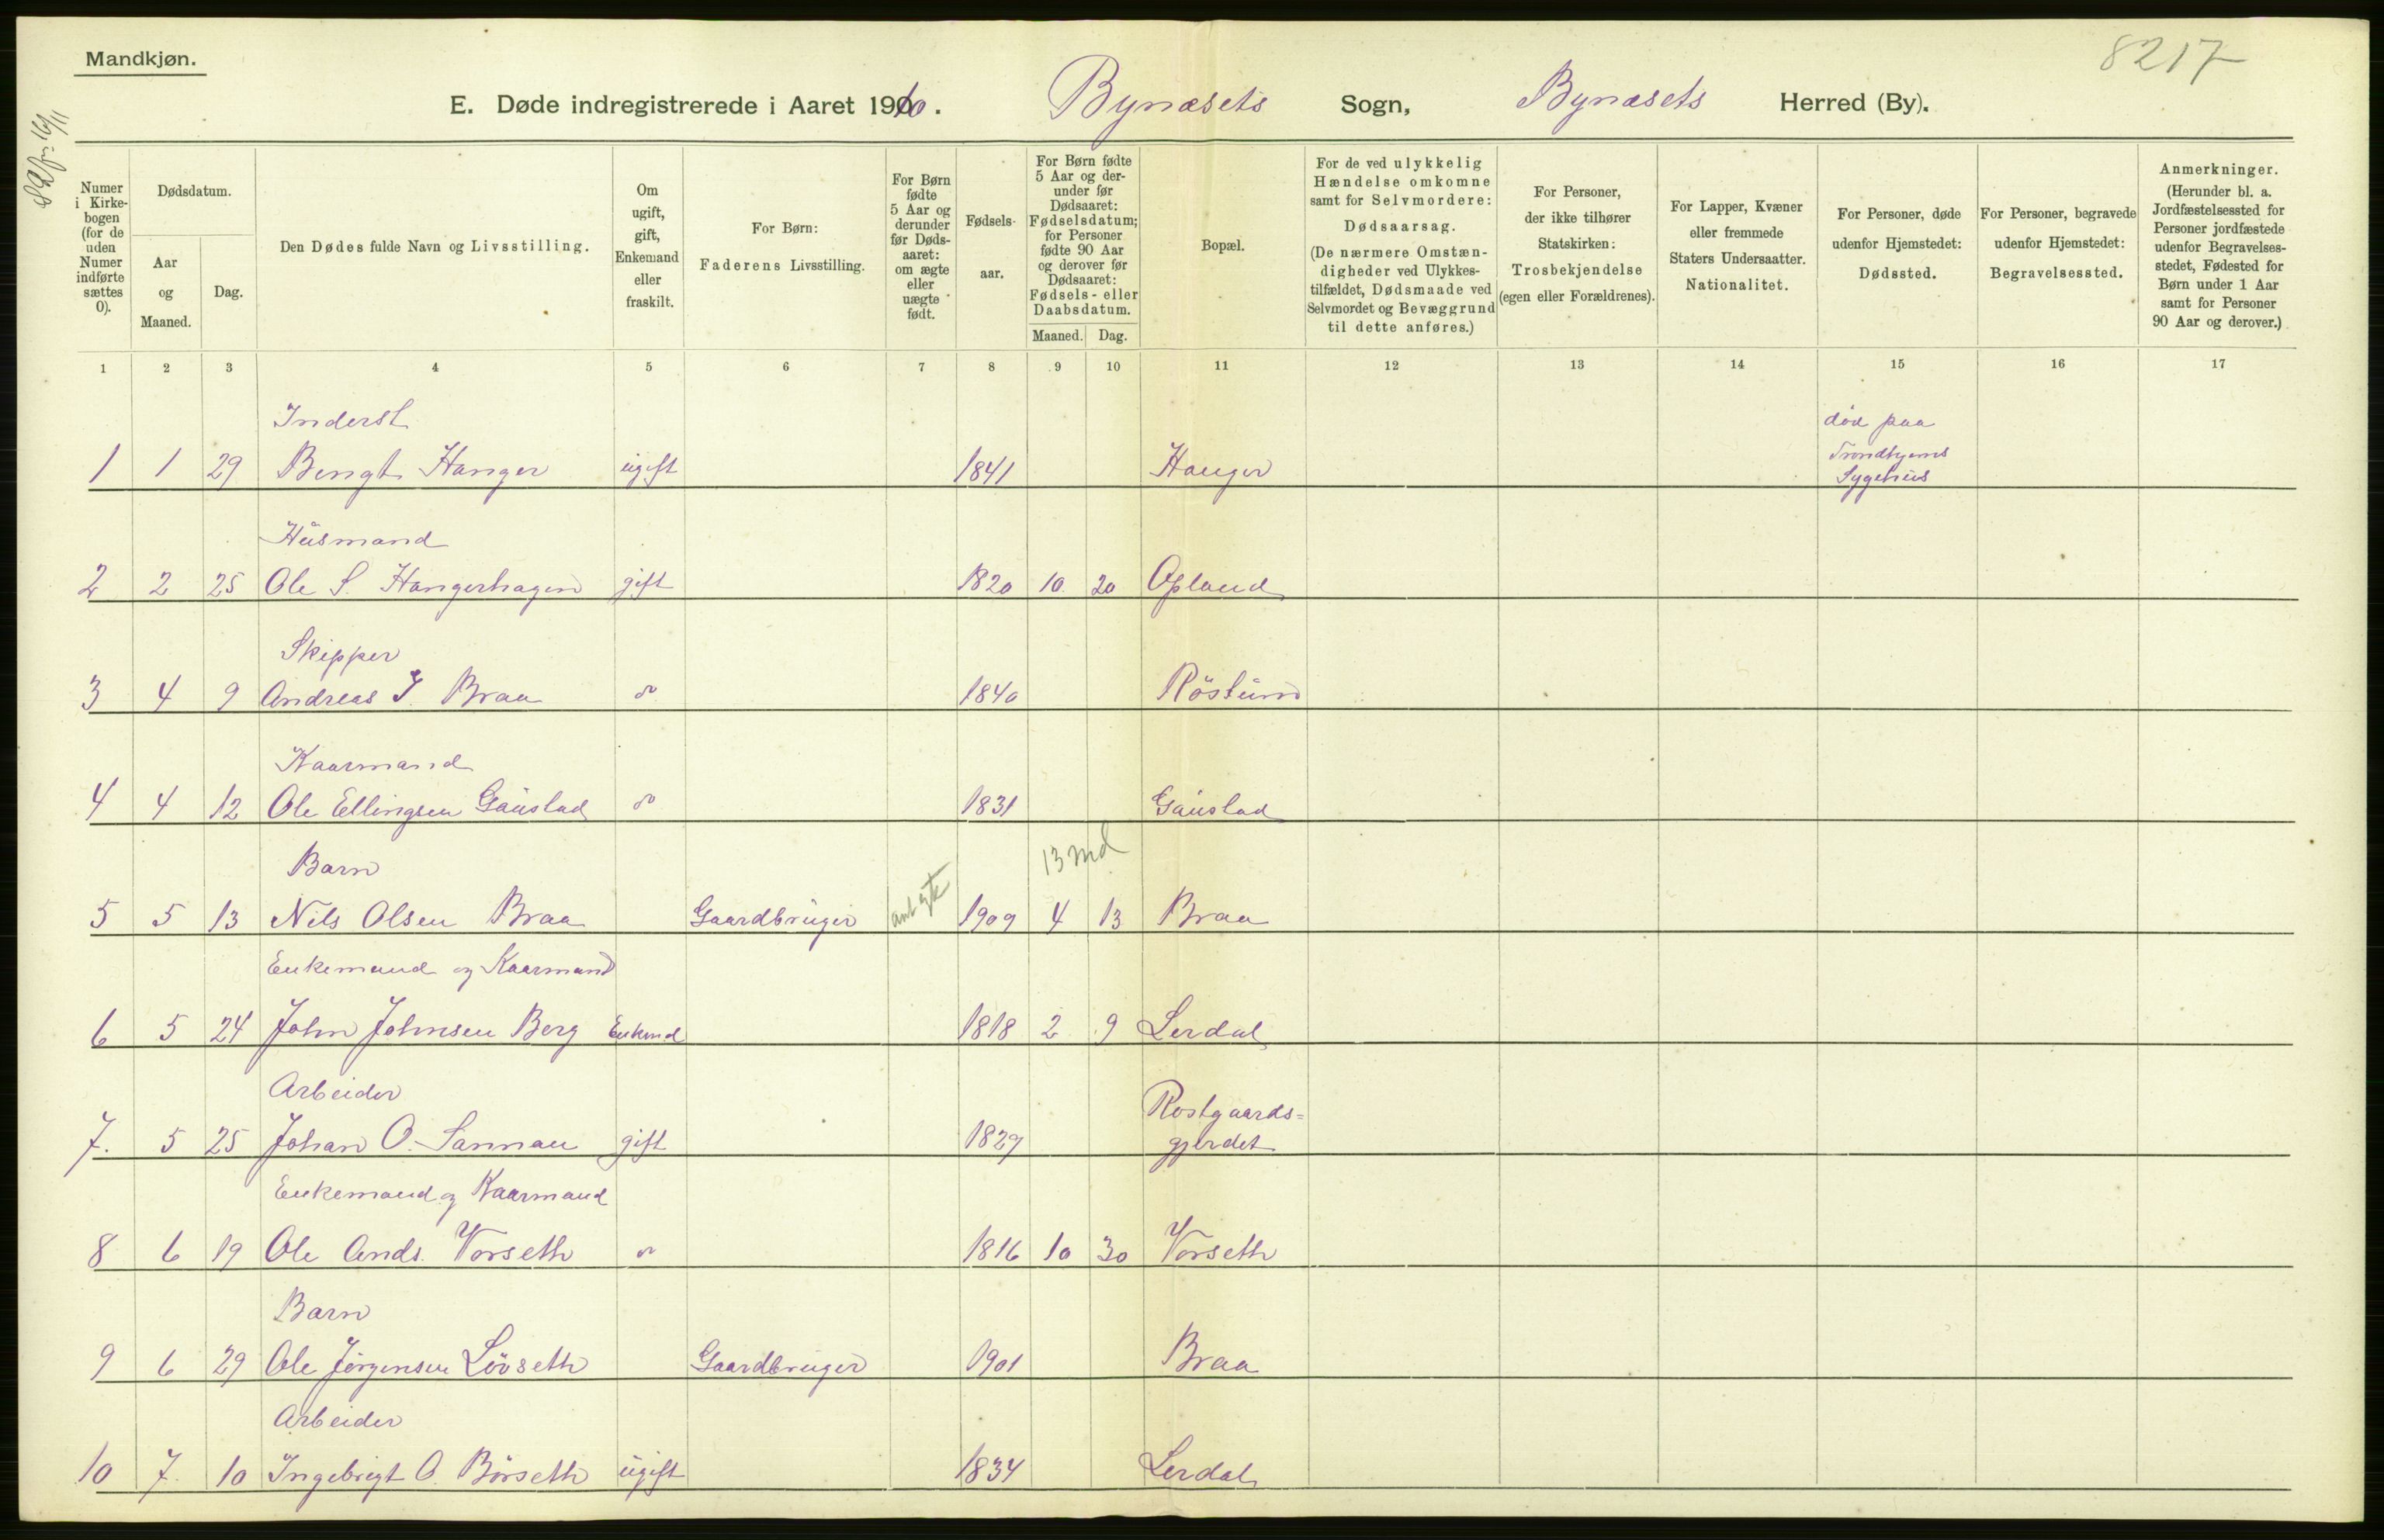 Mandkjøn.
8217
E. Døde indregistrerede i Aaret 1910. Bynæsets Sogn, Bynæsets Herred (By).
Numer i Kirke-bogen (for de uden Numer indførte sættes 0).
Dødsdatum.
Aar og Maaned.
Dag.
Den Dødes fulde Navn og Livsstilling.
Om ugift, gift, Enkemand eller fraskilt.
For Børn:
Faderens Livsstilling.
For Børn fødte 5 Aar og derunder før Døds-aaret: om ægte eller uægte født.
Fødsels-aar.
For Børn fødte 5 Aar og der-under før Dødsaaret: Fødselsdatum; for Personer fødte 90 Aar og derover før Dødsaaret: Fødsels- eller Daabsdatum.
Maaned. Dag.
Bopæl.
For de ved ulykkelig Hændelse omkomne samt for Selvmordere:
Dødsaarsag.
(De nærmere Omstæn-digheder ved Ulykkes-tilfældet, Dødsmaade ved Selvmordet og Bevæggrund til dette anføres.)
For Personer, der ikke tilhører Statskirken:
Trosbekjendelse (egen eller Forældrenes).
For Lapper, Kvæner eller fremmede Staters Undersaatter.
Nationalitet.
For Personer, døde udenfor Hjemstedet:
Dødssted.
For Personer, begravede udenfor Hjemstedet:
Begravelsessted.
Anmerkninger.
(Herunder bl. a. Jordfæstelsessted for Personer jordfæstede udenfor Begravelses-stedet, Fødested for Børn under 1 Aar samt for Personer 90 Aar og derover.)
1 2 3 4 5 6 7 8 9 10 11 12 13 14 15 16 17
Inderst
død paa
Trondhjems
1 1 29 Bengt Hanger ugift 1841 Hanger Sygehus
Husmand
2 2 25 Ole S. Hangerhagen gift 1820 10 20 Opland
Skipper
3 4 9 Andreas J. Braa do 1840 Röstum
Kaarmand
4 4 12 Ole Ellingsen Gaustad do 1831 Gaustad
Barn
13 md
5 5 13 Nils Olsen Braa Gaardbruger ant ægte 1909 4 13 Braa
Enkemand og Kaarmand
6 5 24 John Johnsen Berg Enkmd 1818 2 9 Lerdal
Arbeider
Rostgaards=
7. 5 25 Johan O. Sannan gift 1829 gjerdet
Enkemand og Kaarmand
8 6 19 Ole Ands. Vorseth do 1816 10 30 Vorseth
Barn
9 6 29 Ole Jörgensen Lövseth Gaardbruger 1901 Braa
Arbeider
10 7. 10 Ingebrigt O. Börseth ugift 1834 Lerdal